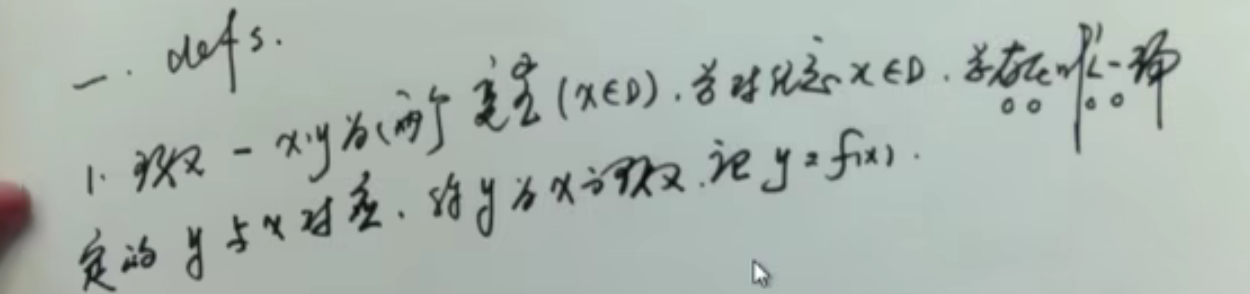 一. defs.
1. 函数 - x,y为两个变量(x∈D).若对任意x∈D.总存在唯一确
定的y与x对应.称y为x的函数.记y=f(x).